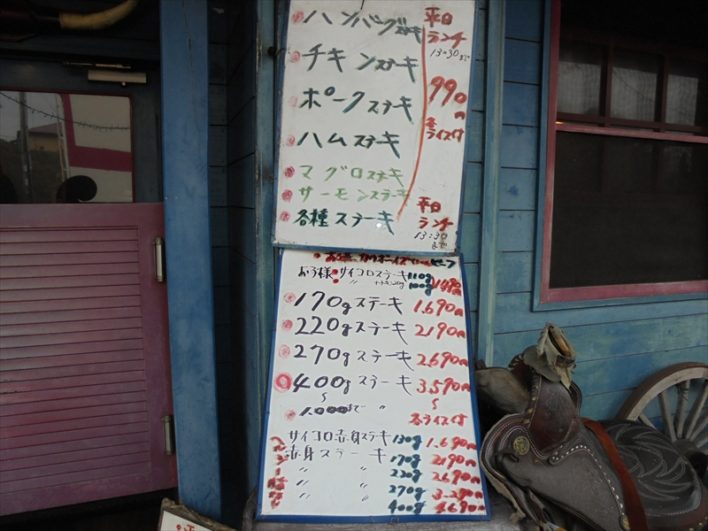 ハンバーグステーキ
チキンステーキ
ポークステーキ
ハムステーキ
マグロステーキ
サーモンステーキ
各種ステーキ
平日
ランチ
13:30まで
990
円
各ライス付
平日
ランチ
13:30
まで
お子様サイコロステーキ 110g
170gステーキ 1.690円
220gステーキ 2190円
270gステーキ 2.690円
400gステーキ 3.590円
〜 〜
1.000まで 〃 各ライス付
サイコロ赤身ステーキ 130g 1.690円
赤身ステーキ 170g 2190円
〃 〃 220g 2690円
〃 〃 270g
〃 〃 400g